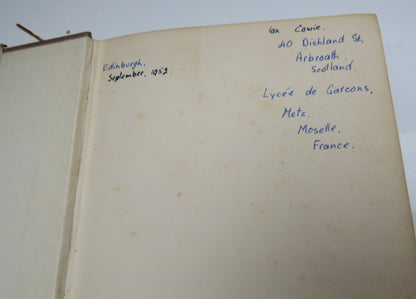 Edinburgh,
September, 1952.
Ian Cowie.
40 Dishland St,
Arbroath.
Scotland.
Lycée de Garcons,
Metz.
Moselle.
France.